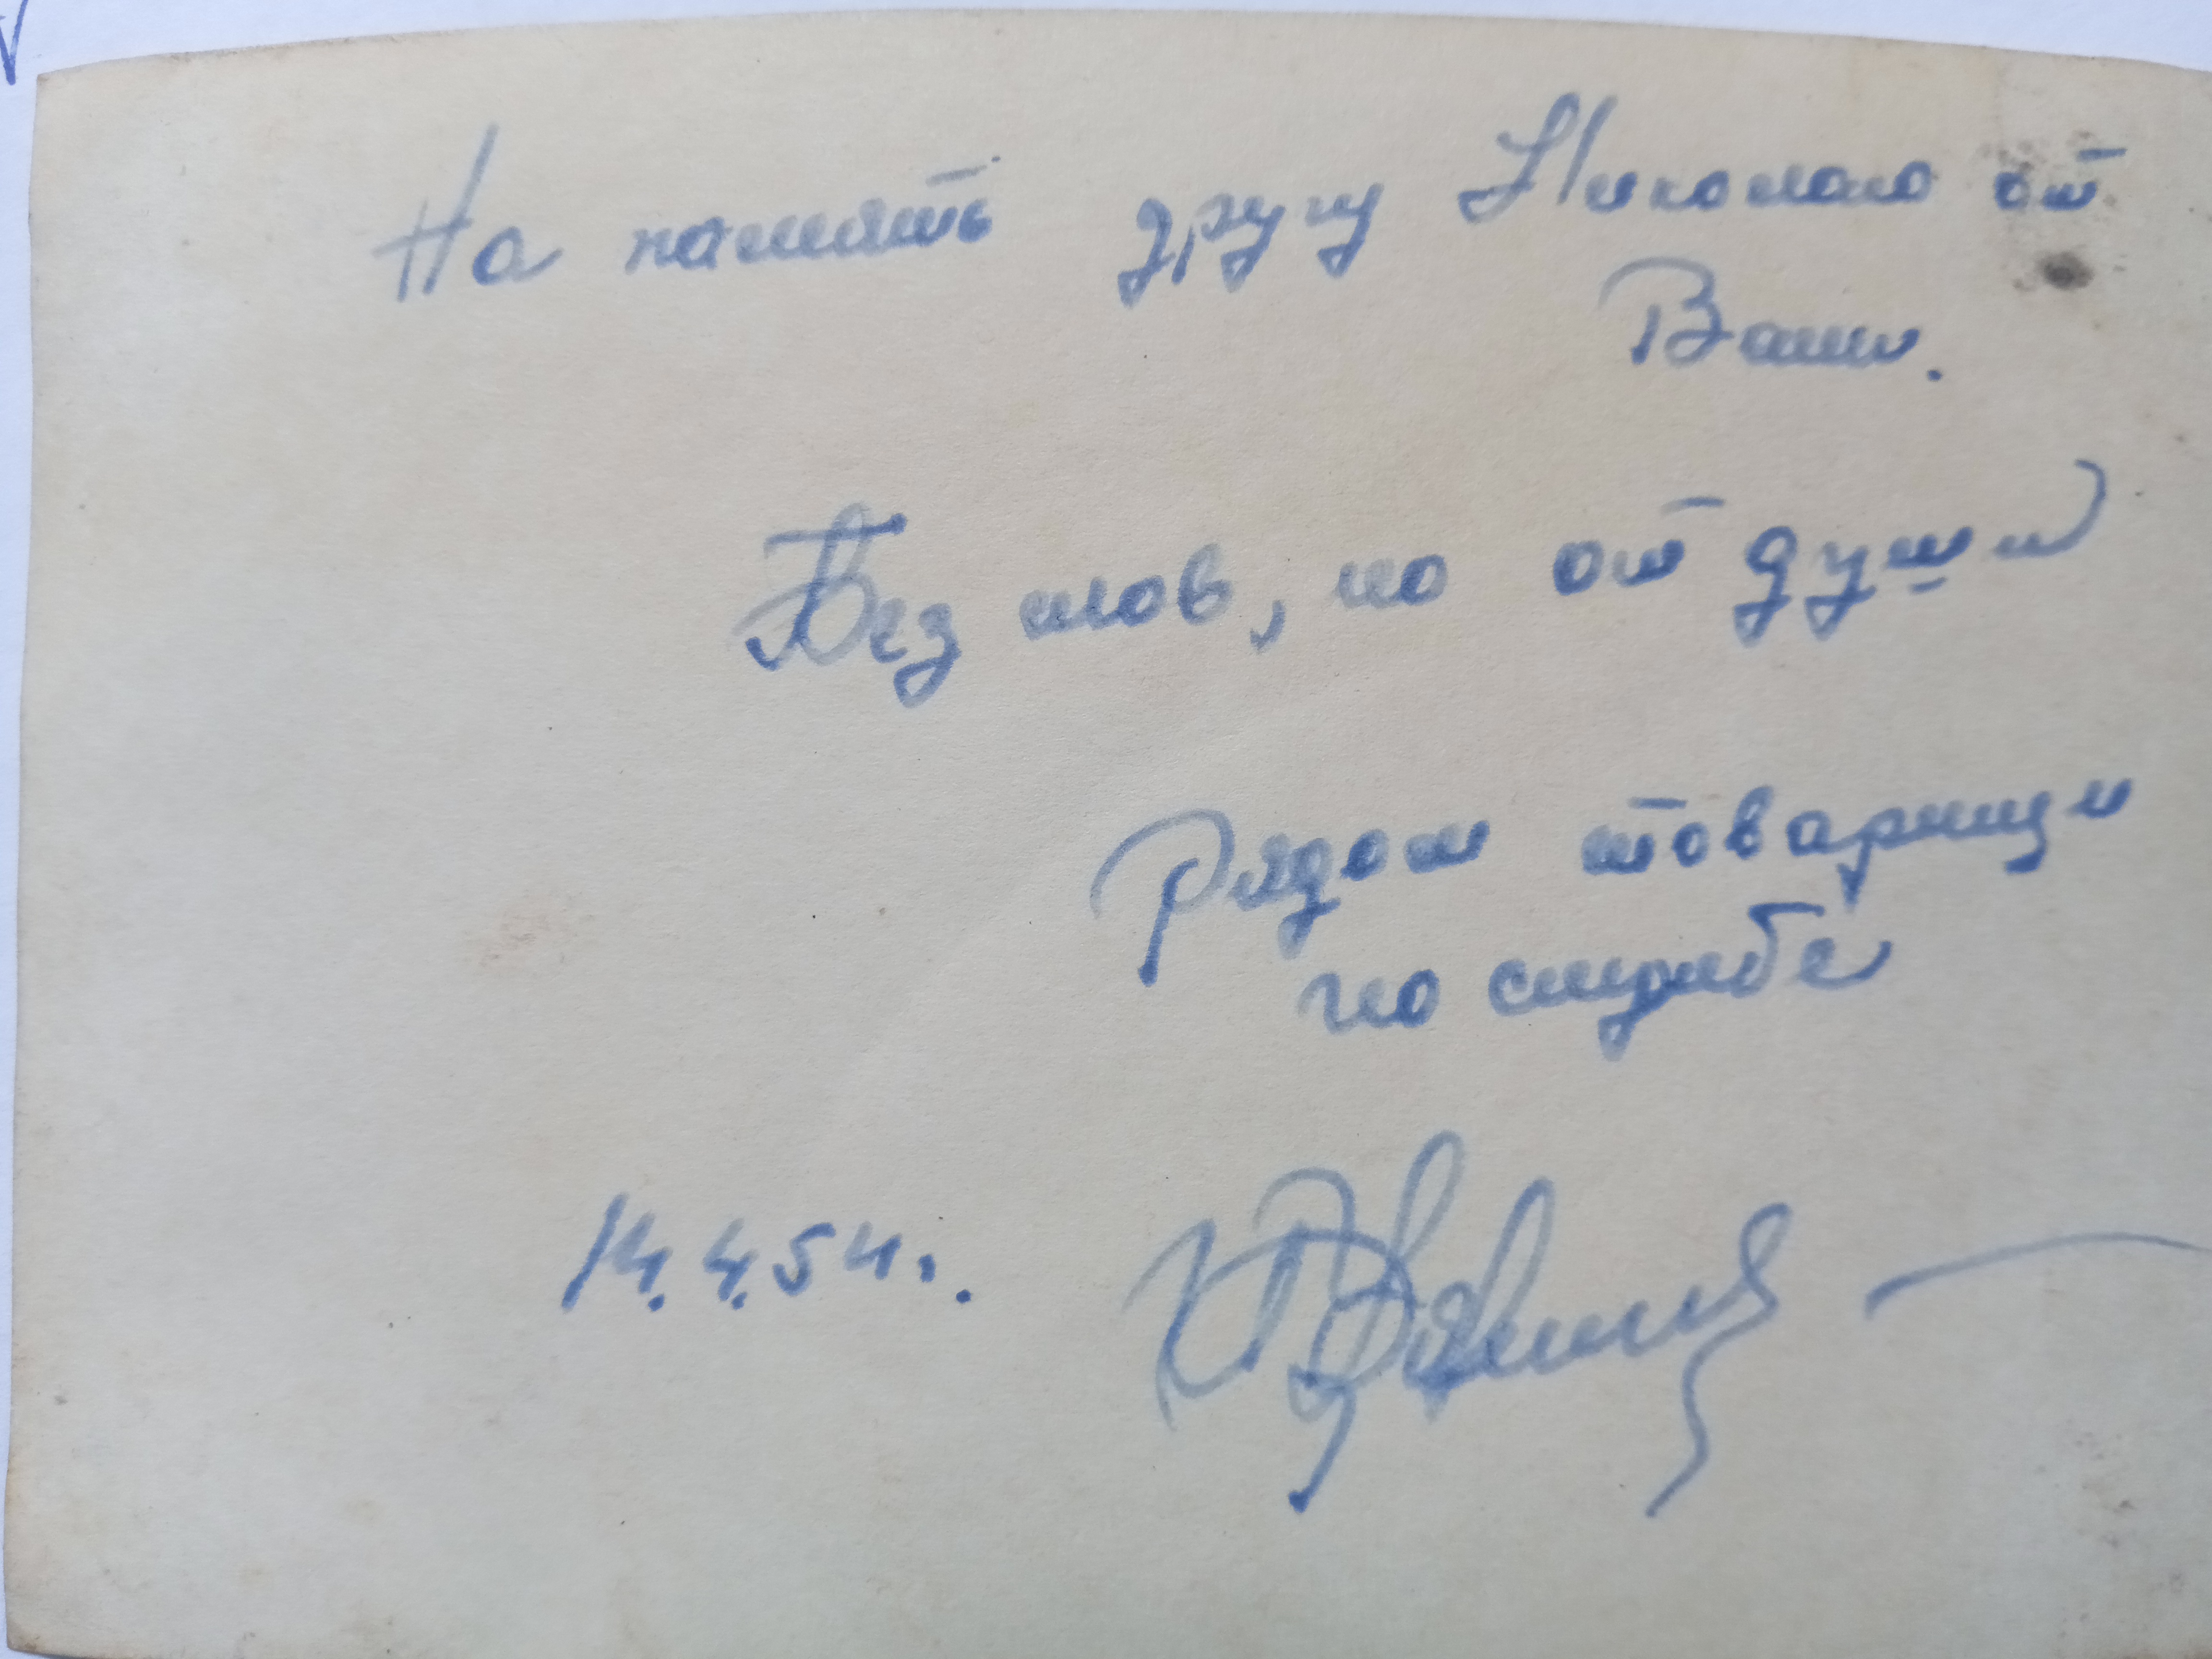 На память другу Николаю от
Вани.
Без слов, но от души
Рядом товарищи
по службе
14.4.54г.